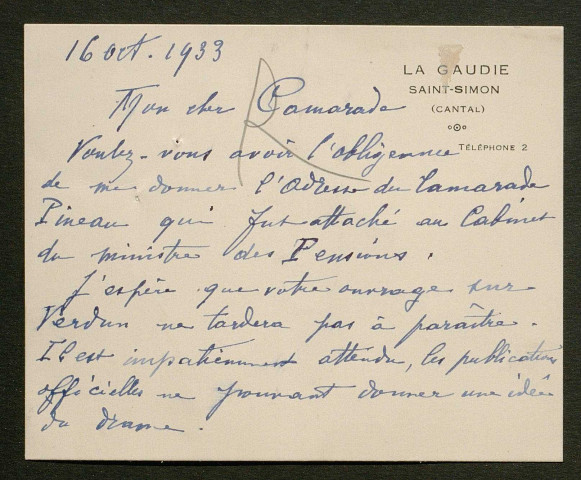 16 oct. 1933
LA GAUDIE
SAINT-SIMON
(CANTAL)
TÉLÉPHONE 2
Mon cher Camarade
Voulez-vous avoir l'obligeance
de me donner l'adresse du Camarade
Pineau qui fut attaché au Cabinet
du ministre des Pensions.
J'espère que votre ouvrage sur
Verdun ne tardera pas à paraître.
Il est impatiemment attendu, les publications
officielles ne pouvant donner une idée
du drame.